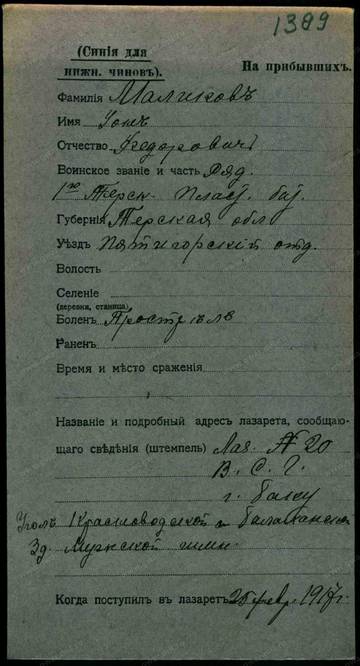 1389
(Синія для
нижн. чиновъ).
На прибывшихъ.
Фамилія Маликовъ
Имя
Отчество Федоровичъ
Воинское званіе и часть Ряд.
1го Терск. Пласт. бат.
Губернія Терская обл
Уѣздъ Пятигорскій отд.
Волость
Селеніе
(деревня, станица)
Боленъ Прострѣлъ
Раненъ
Время и мѣсто сраженія
Названіе и подробный адресъ лазарета, сообщаю-
щаго свѣдѣнія (штемпель) Лаз. № 20
В. С. Г.
г. Баку
Уголъ Красноводской и Балаханской
Зд. Мужской гимн.
Когда поступилъ въ лазаретъ 25 февр. 1917 г.